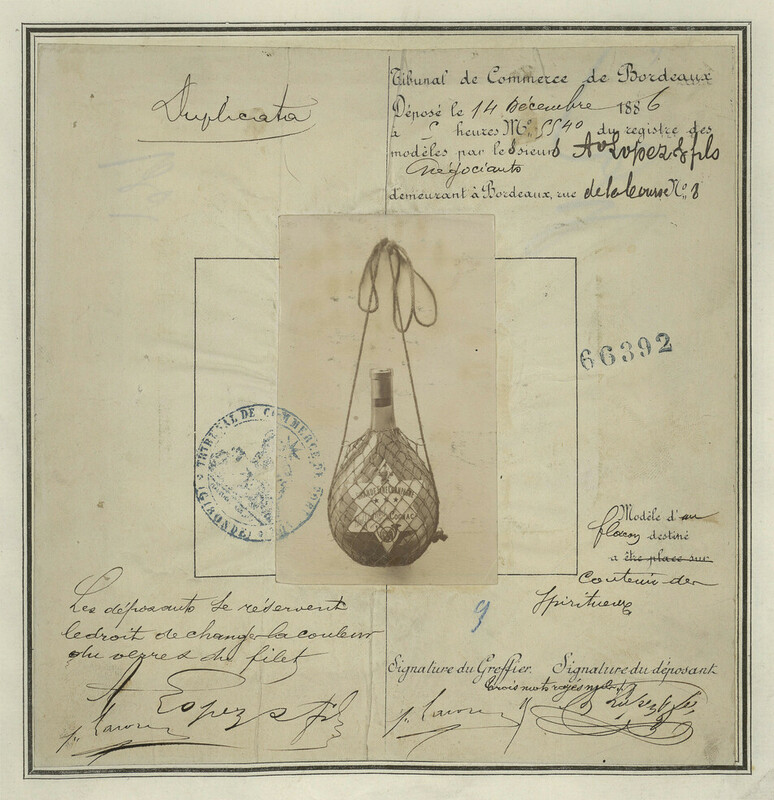 Duplicata
Tribunal de Commerce de Bordeaux
Déposé le 14 Décembre 1886
à 5 heures No. 5540 du registre des
modèles par les sieurs Ao Lopez & fils
négociants
demeurant à Bordeaux, rue de la Course No. 8
66392
TRIBUNAL DE COMMERCE DE BOR
(GIRONDE)
COGNAC
Modèle d'un
flacon destiné
a être place sur
contenir des
spiritueux
9
Les déposants se réservent
le droit de changer la couleur
du verre & du filet
Signature du Greffier. Signature du déposant
trois mots rayés nuls
A Lopez & fils
Lopez & fils